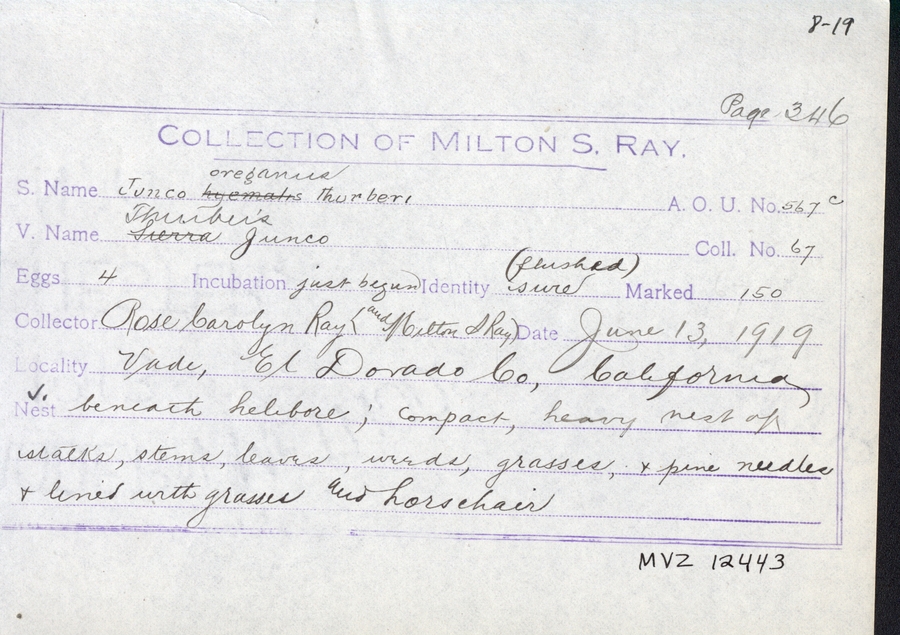 8-19
Page 346
COLLECTION OF MILTON S. RAY.
oreganus
S. Name Junco hyemalis thurberi A. O. U. No. 567 c
Thurber's
V. Name Sierra Junco Coll. No. 67
(flushed)
Eggs 4 Incubation just begun Identity sure Marked 150
Collector Rose Carolyn Ray (and Milton S Ray) Date June 13, 1919
Locality Vade, El Dorado Co, California
Nest beneath helibore; compact, heavy nest of
stalks, stems, leaves, weeds, grasses, & pine needles
& lined with grasses and horsehair
MVZ 12443